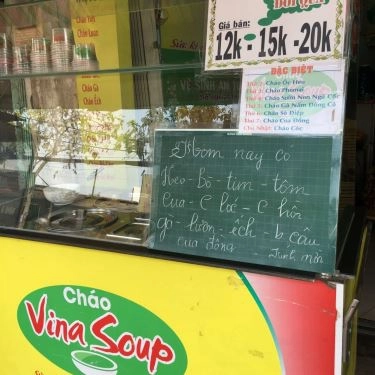 DÒI QUÁ
Giá bán:
12k - 15k - 20k
ĐẶC BIỆT
Thứ 2: Cháo Ốc Heo
Thứ 3: Cháo Phomai
Thứ 4: Cháo Sườn Non Ngũ Cốc
Thứ 5: Cháo Gà Nấm Đông Cô
Thứ 6: Cháo Sò Điệp
Thứ 7: Cháo Cua Đồng
Chủ Nhật: Cháo Cóc
Cháo
Cháo Lươn
Cháo Gà
Cháo Ếch
VỆ SINH AN
Hôm nay có
Heo - Bò - tim - tôm
Cua - C lóc - C hồi
gà - lươn - ếch - b câu
cua đồng
Cháo
Vina Soup